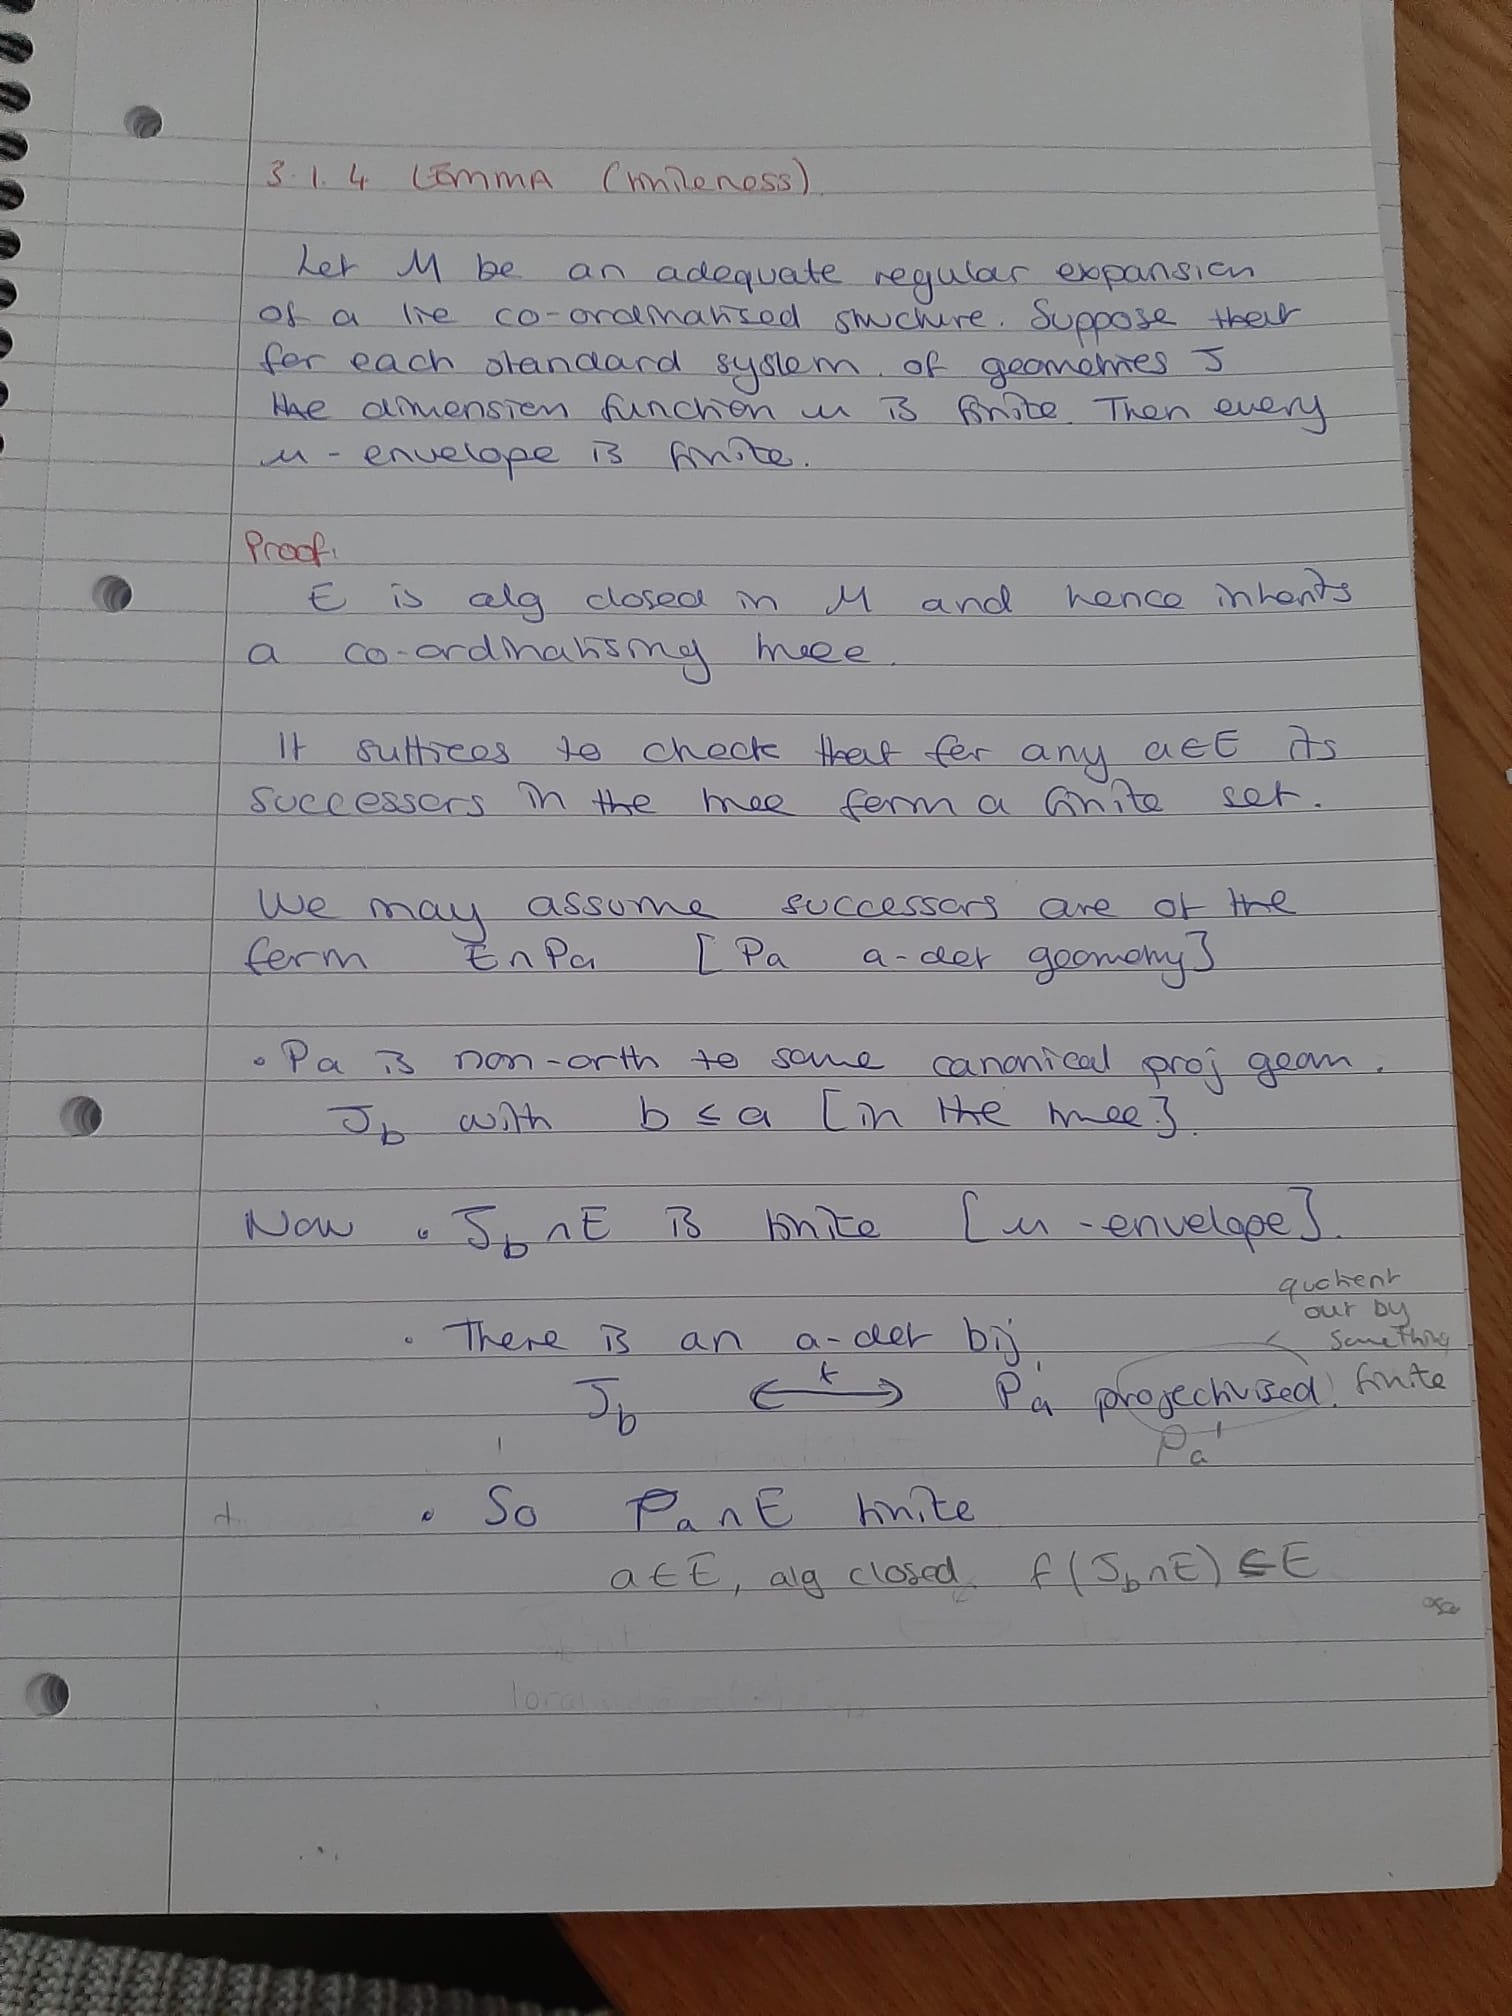 3.1.4 LEMMA (finiteness).
Let M be an adequate regular expansion
of a lie co-ordinatised structure. Suppose that
for each standard system of geometries J
the dimension function μ is finite. Then every
μ-envelope is finite.
Proof.
E is alg closed in M and hence inherits
a co-ordinatising tree.
It suffices to check that for any a∈E its
successors in the tree form a finite set.
We may assume successors are of the
form E∩Pa [Pa a-def geometry]
• Pa is non-orth to some canonical proj geom.
J_b with b ≤ a [in the tree].
Now • J_b ∩ E is finite [μ-envelope].
quotient
out by
• There is an a-def bij
something
J_b ⟷ f P_a projectivised. finite
P_a'
• So P_a ∩ E finite
a ∈ E, alg closed. f(J_b∩E) ⊆ E